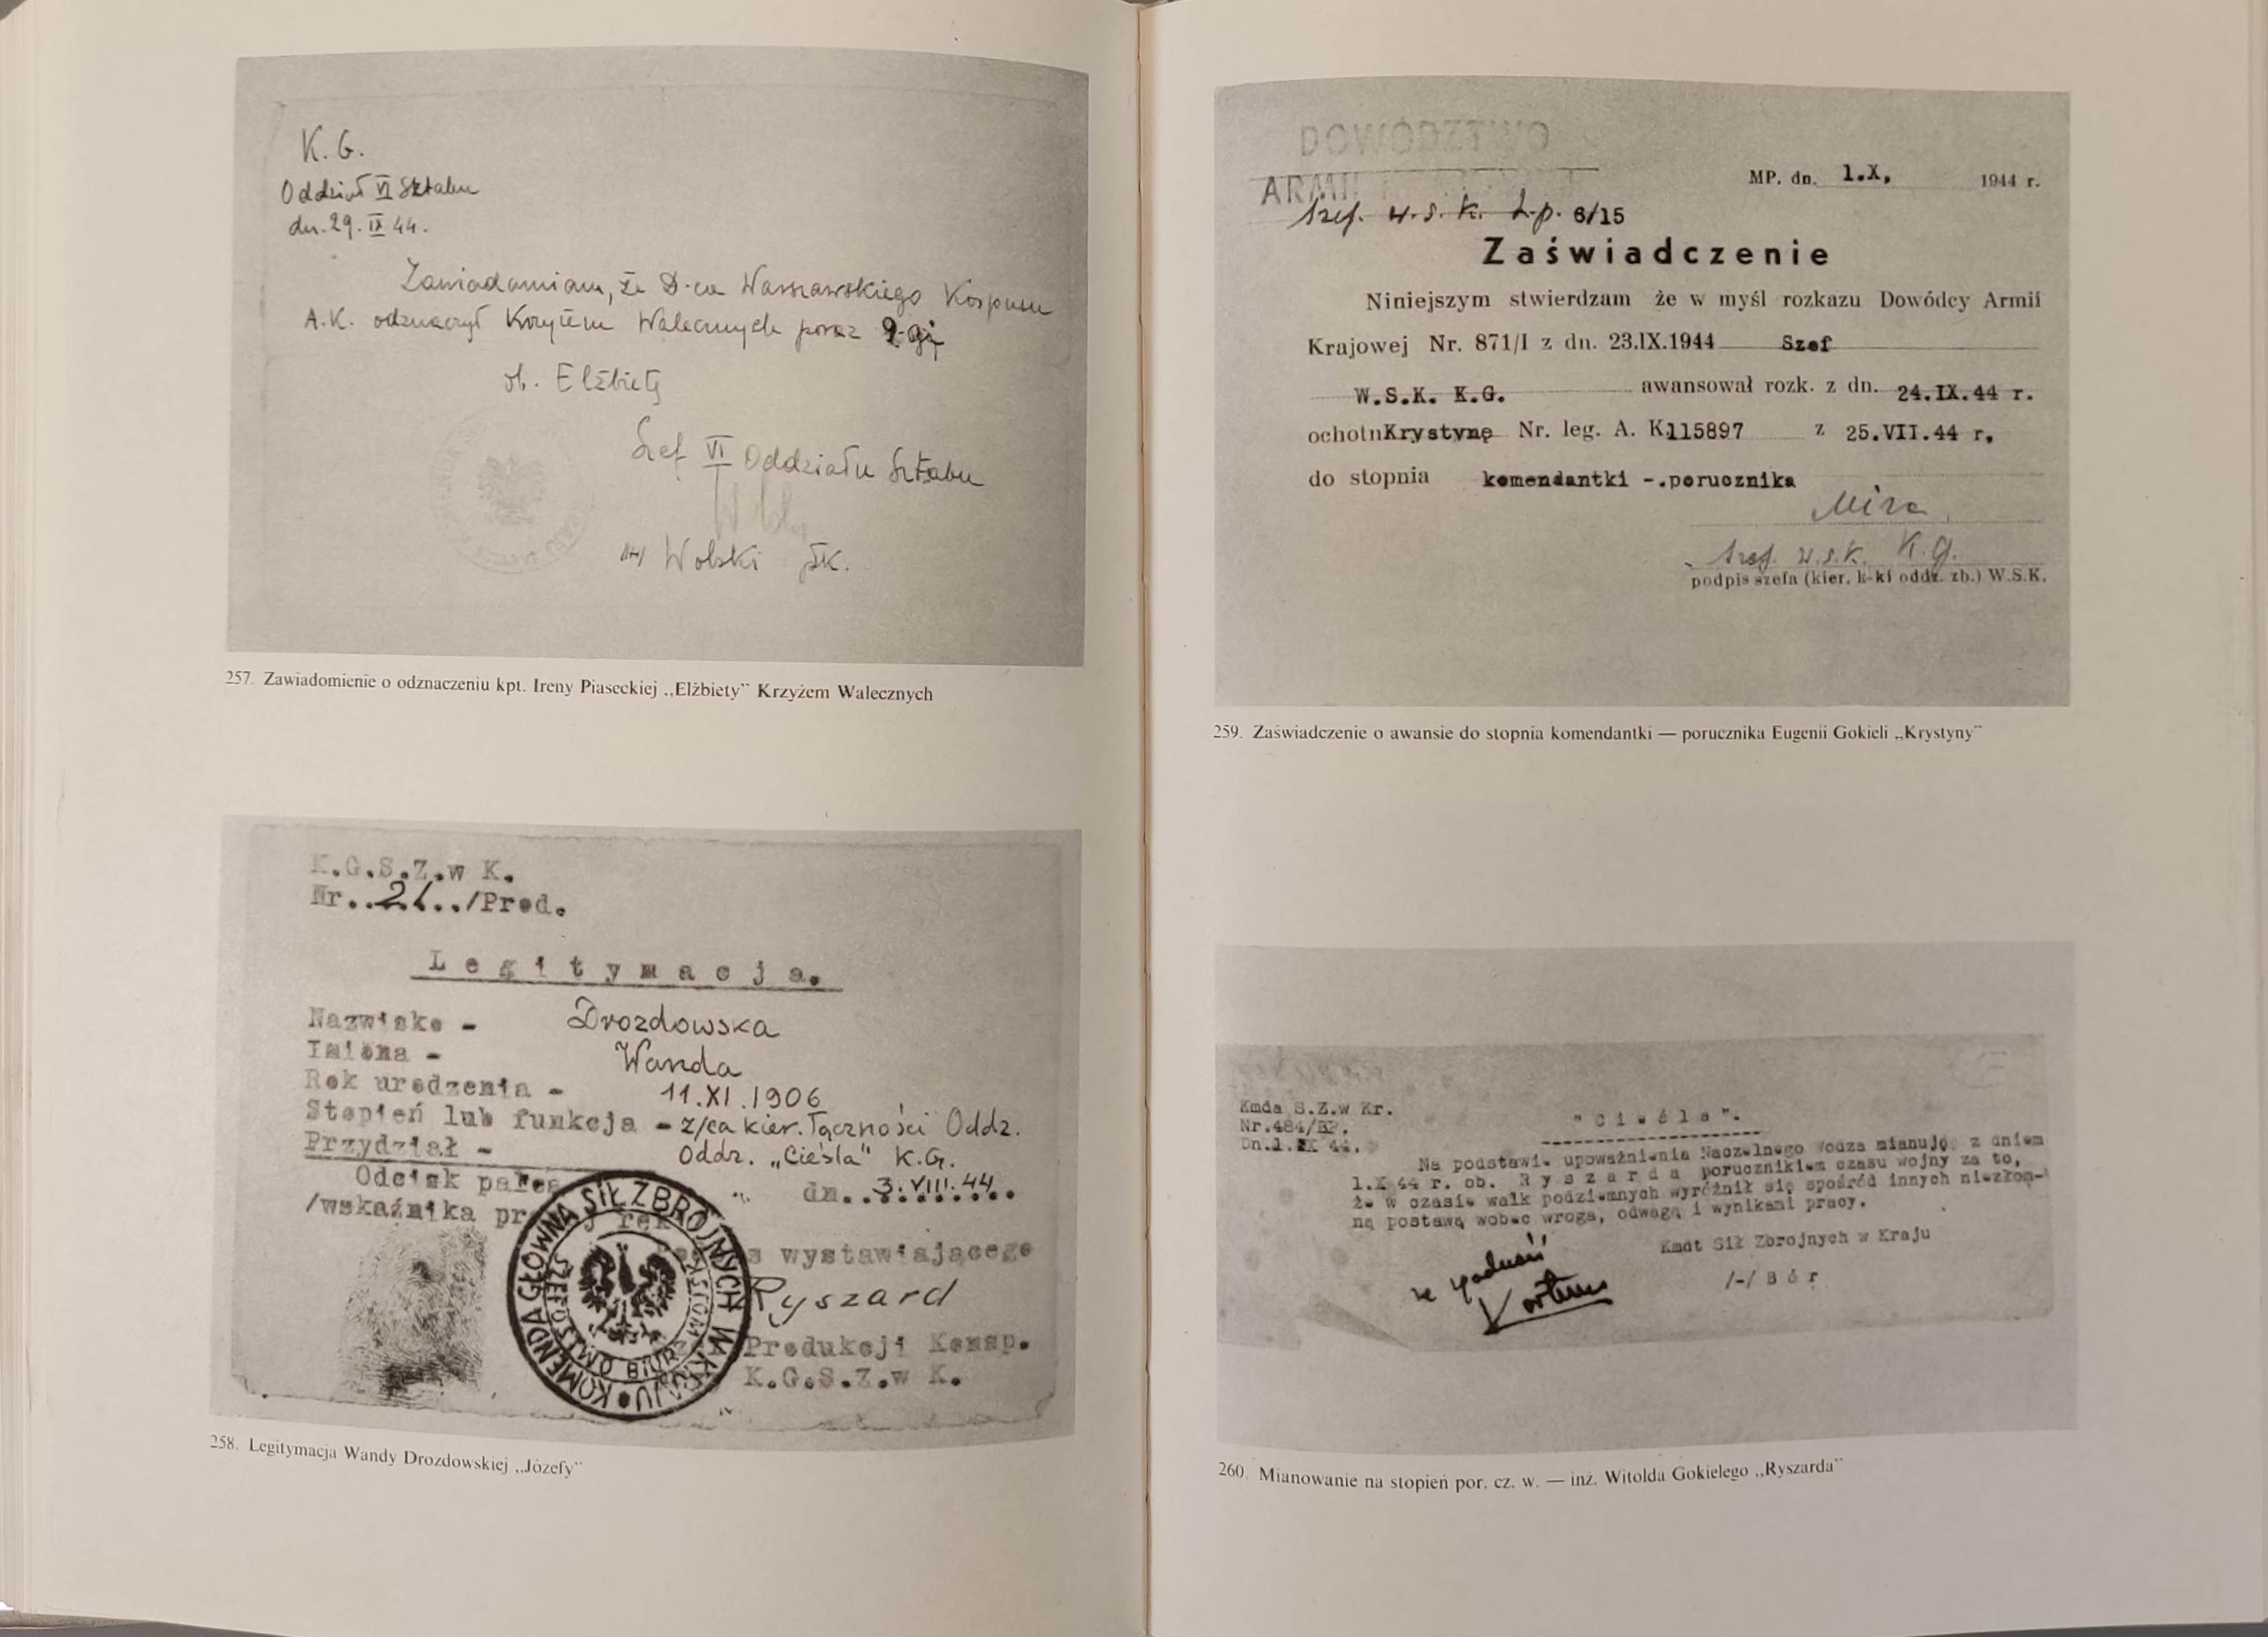 K. G.
Oddział VI Sztabu
dn. 29. IX 44.
Zawiadamiam, że D-ca Warszawskiego Korpusu
A.K. odznaczył Krzyżem Walecznych poraz 2-gi
ob. Elżbietę
Szef VI Oddziału Sztabu
/-/ Wolski płk.
257. Zawiadomienie o odznaczeniu kpt. Ireny Piaseckiej „Elżbiety” Krzyżem Walecznych
K.G.S.Z.w K.
Nr...21../Prod.
Legitymacja.
Nazwisko - Drozdowska
Imiona - Wanda
Rok urodzenia - 11.XI.1906
Stopień lub funkcja - z/ca kier. Łączności Oddz.
Przydział - Oddz. „Cieśla” K.G.
Odcisk palca dn..3.VIII.44..
/wskaźnika pr j ręki
KOMENDA GŁÓWNA SIŁ ZBROJNYCH W KRAJU
SZEFOSTWO BIUR WOJSK
s wystawiającego
Ryszard
Produkcji Konsp.
K.G.S.Z.w K.
258. Legitymacja Wandy Drozdowskiej „Józefy”
DOWÓDZTWO
ARMII
Szef. W.S.K. L.p. 6/15
MP. dn. 1.X, 1944 r.
Zaświadczenie
Niniejszym stwierdzam że w myśl rozkazu Dowódcy Armii
Krajowej Nr. 871/I z dn. 23.IX.1944 Szef
W.S.K. K.G. awansował rozk. z dn. 24.IX.44 r.
ochotnKrystynę Nr. leg. A. K115897 z 25.VII.44 r.
do stopnia komendantki -.porucznika
Mira
Szef. W.S.K. K.G.
podpis szefa (kier. k-ki oddz. zb.) W.S.K.
259. Zaświadczenie o awansie do stopnia komendantki — porucznika Eugenii Gokieli „Krystyny”
Kmda S.Z.w Kr.
Nr.484/BP.
Dn.1.IX 44.
"Cieśla".
Na podstawie upoważnienia Naczelnego Wodza mianuję z dniem
1.X 44 r. ob. Ryszarda porucznikiem czasu wojny za to,
że w czasie walk podziemnych wyróżnił się spośród innych niezłom-
ną postawą wobec wroga, odwagą i wynikami pracy.
Kmdt Sił Zbrojnych w Kraju
/-/ Bór
za zgodność
260. Mianowanie na stopień por. cz. w. — inż. Witolda Gokielego „Ryszarda”